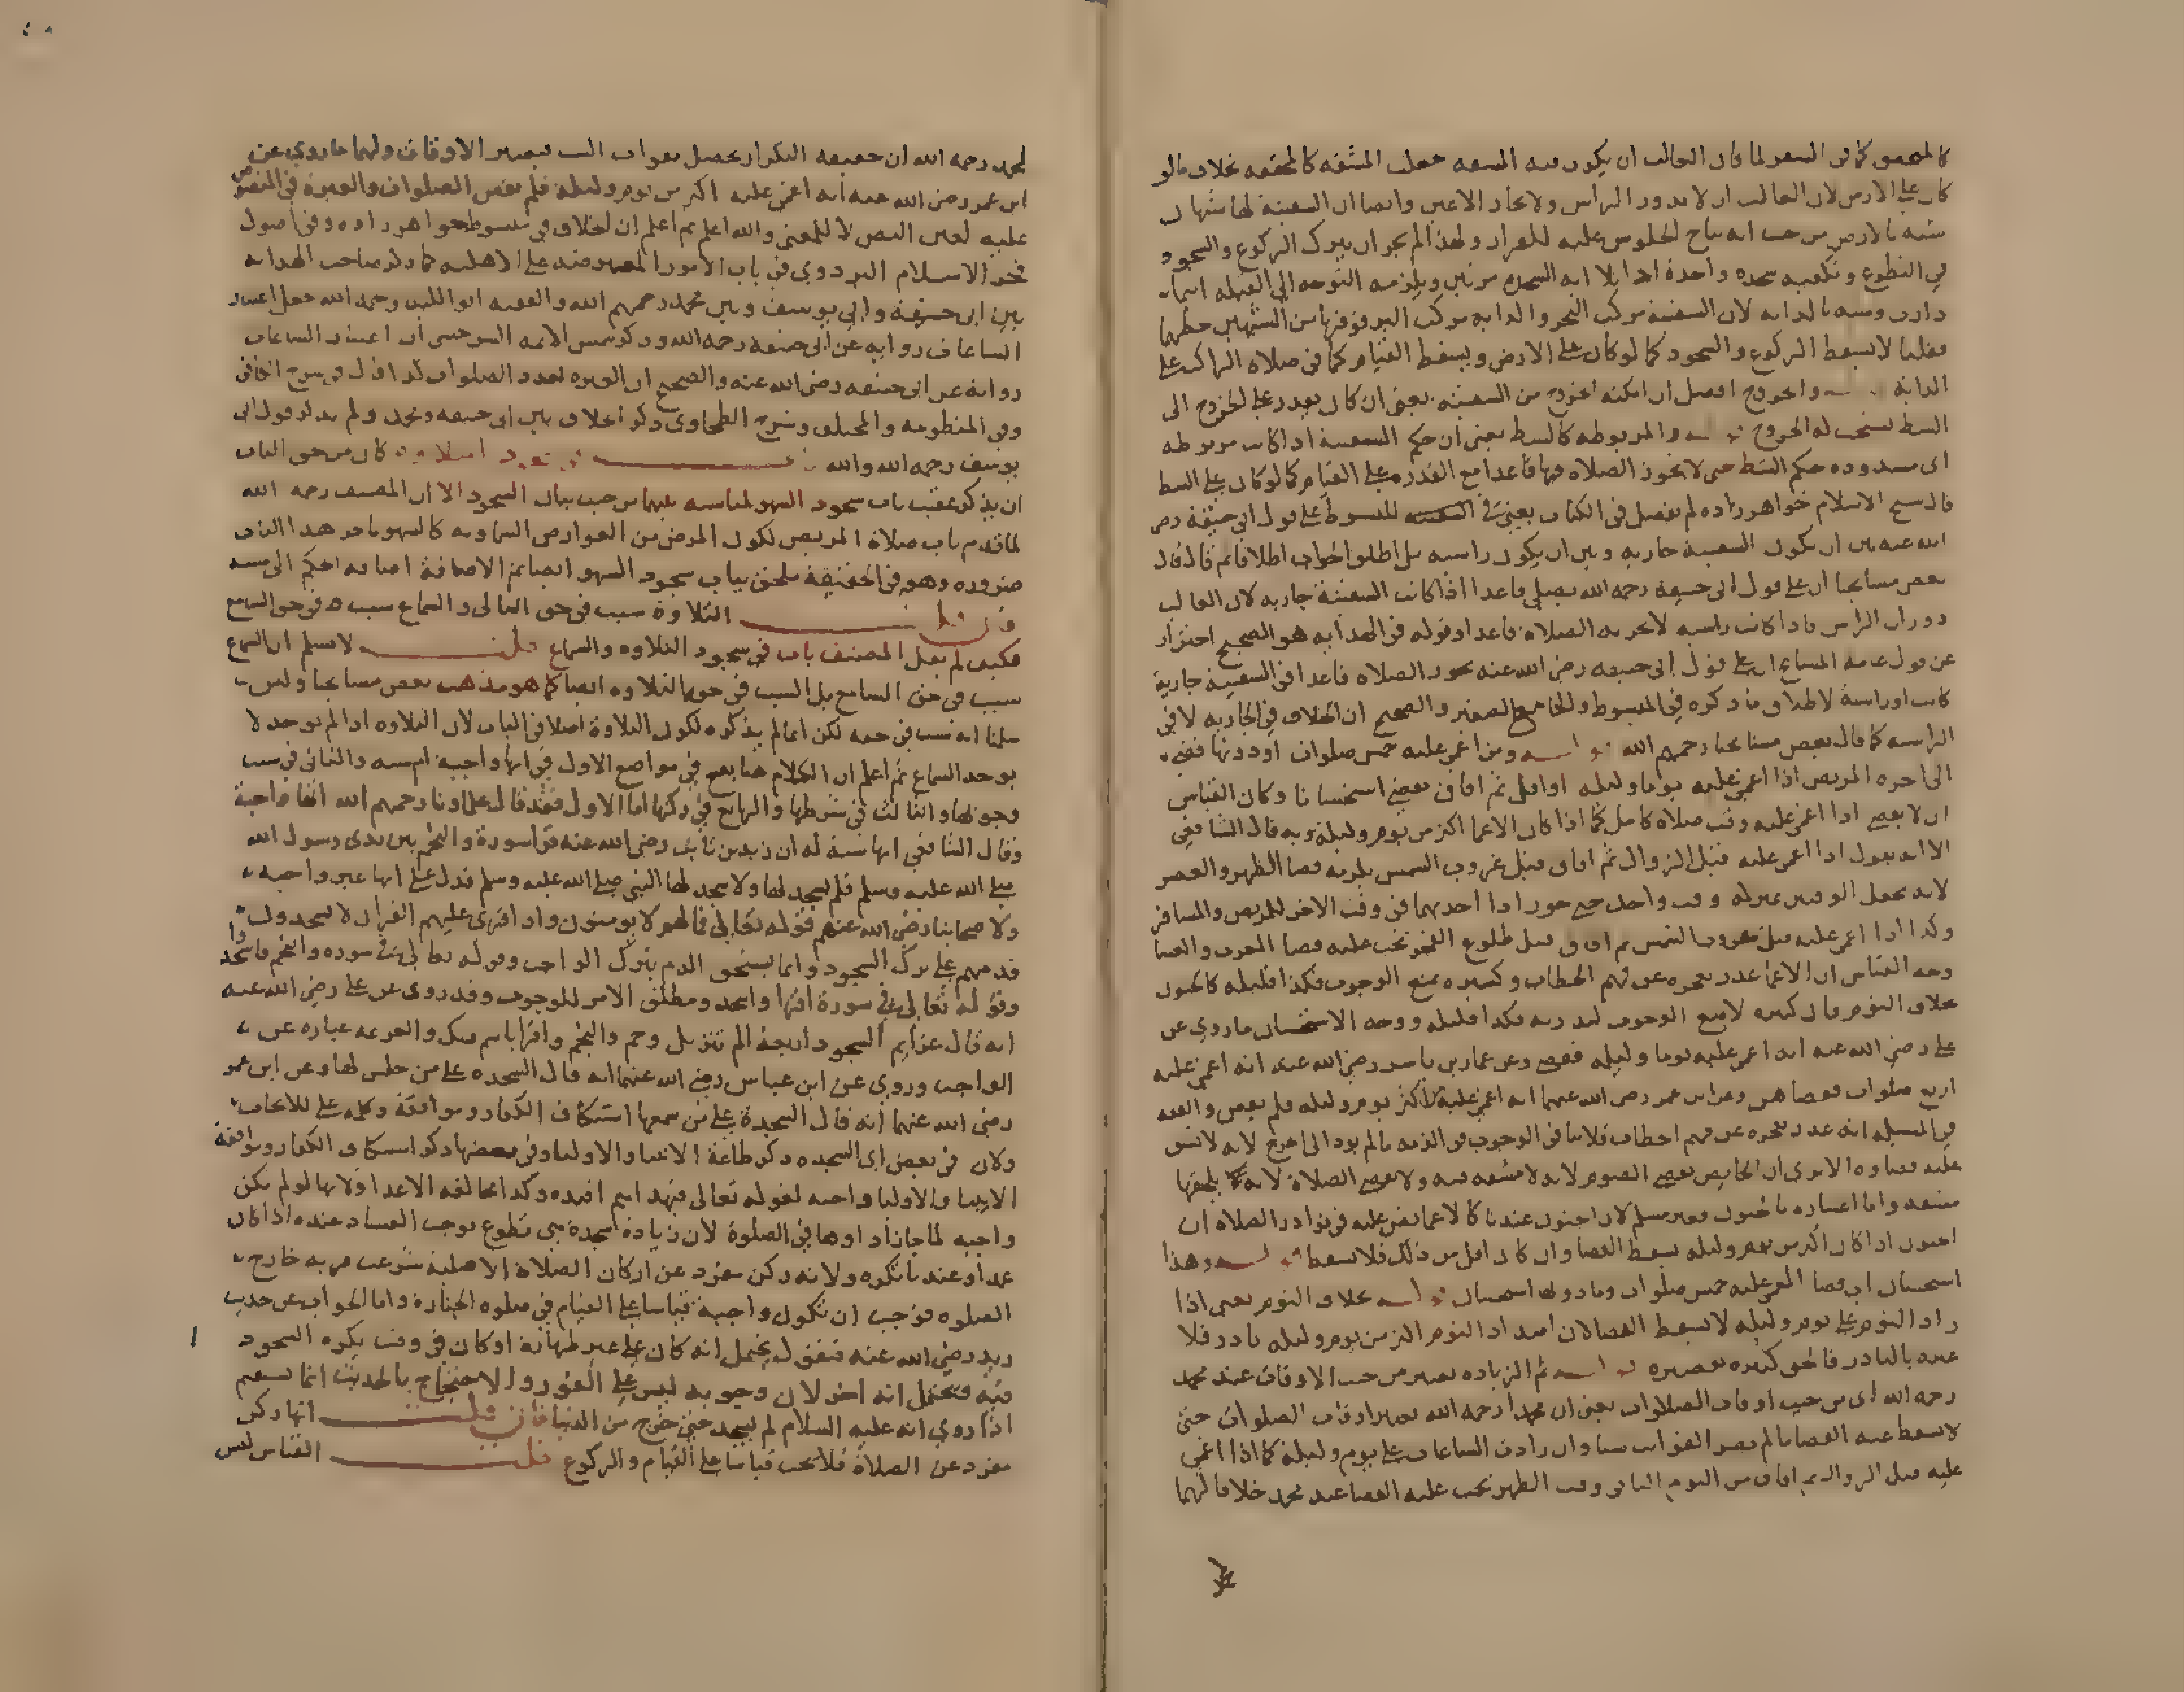 كالمتحقق كما في السفر لما كان الغالب ان يكون فيه المشقة جعلت المشقة كالمحققة بخلاف ما لو
كان على الارض لان الغالب ان لا يدور الراس ولا الاعين وايضا ان السفينة لها شبهان
شبه بالارض من حيث انه يباح الجلوس عليه للقرار ولهذا لم يجز ان يترك الركوع والسجود
في التطوع وتكفيه سجدة واحدة اذا تلا اية السجدة مرتين ويلزمه التوجه الى القبلة
دارت وشبه بالدابة لان السفينة مركب البحر والدابة مركب البر فوفرنا من الشبهين حظهما
فقلنا لا يسقط الركوع والسجود كما لو كان على الارض ويسقط القيام كما في صلاة الراكب على
الدابة والخروج افضل ان امكنه الخروج من السفينة يعني ان كان يقدر على الخروج الى
الشط يستحب له الخروج والمربوطة كالشط يعني ان حكم السفينة اذا كانت مربوطة
اي مسدودة حكم الشط حتى لا يجوز الصلاة فيها قاعدا مع القدرة على القيام كما لو كان على الشط
قال شيخ الاسلام خواهر زاده لم يفصل في الكتاب يعني في المبسوط على قول ابي حنيفة رضي
الله عنه بين ان يكون السفينة جارية وبين ان يكون راسية بل اطلق الجواب اطلاقا ثم قال قال
بعض مشايخنا ان على قول ابي حنيفة رحمه الله يصلي قاعدا اذا كانت السفينة جارية لان الغالب
دوران الراس فاذا كانت راسية لا يجزيه الصلاة قاعدا وقوله في الهداية هو الصحيح احتراز
عن قول عامة المشايخ ان على قول ابي حنيفة رضي الله عنه يجوز الصلاة قاعدا في السفينة جارية
كانت او راسية لاطلاق ما ذكره في المبسوط والجامع الصغير والصحيح ان الخلاف في الجارية لا في
الراسية كما قال بعض مشايخنا رحمهم الله قوله ومن اغمي عليه خمس صلوات او دونها قضى
الى اخره المريض اذا اغمي عليه يوما وليلة او اقل ثم افاق يقضي استحسانا وكان القياس
ان لا يقضي اذا اغمي عليه وقت صلاة كامل كما اذا كان الاغما اكثر من يوم وليلة وبه قال الشافعي
الا انه يقول اذا اغمي عليه قبل الزوال ثم افاق قبل غروب الشمس يلزمه قضا الظهر والعصر
لانه يجعل الوقتين بمنزلة وقت واحد حتى جوز ادا احدهما في وقت الاخر للمريض والمسافر
وكذا اذا اغمي عليه قبل غروب الشمس ثم افاق قبل طلوع الفجر تجب عليه قضا المغرب والعشا
وجه القياس ان الاغما عذر يعجزه عن فهم الخطاب وكثيره يمنع الوجوب فكذا قليله كالجنون
بخلاف النوم فان كثيره لا يمنع الوجوب لندرته فكذا قليله ووجه الاستحسان ما روي عن
علي رضي الله عنه انه اغمي عليه يوما وليلة فقضى وعن عمار بن ياسر رضي الله عنه انه اغمي عليه
اربع صلوات فقضاهن وعن ابن عمر رضي الله عنهما انه اغمي عليه اكثر من يوم وليلة فلم يقض والفقه
في المسئلة انه عذر يعجزه عن فهم الخطاب فلا ينافي الوجوب في الذمة ما لم يود الى الحرج لانه لا يشق
عليه قضاوه الا ترى ان الحايض تقضي الصوم لانه لا مشقة فيه ولا تقضي الصلاة لانه يلحقها
مشقة واما اعتباره بالجنون فغير مسلم لان الجنون عندنا كالاغما نص عليه في نوادر الصلاة ان
الجنون اذا كان اكثر من يوم وليلة يسقط القضا وان كان اقل من ذلك فلا يسقط قوله وهذا
استحسان اي قضا المغمى عليه خمس صلوات وما دونها استحسان قوله بخلاف النوم يعني اذا
زاد النوم على يوم وليلة لا يسقط القضا لان امتداد النوم اكثر من يوم وليلة نادر فلا
عبرة بالنادر فالحق كثيره بقصيره قوله ثم الزيادة تعتبر من حيث الاوقات عند محمد
رحمه الله اي من حيث اوقات الصلوات يعني ان محمدا رحمه الله يعتبر اوقات الصلوات حتى
لا يسقط عنه القضا ما لم يصر الفوايت ستا وان زادت الساعات على يوم وليلة كما اذا اغمي
عليه قبل الزوال ثم افاق من اليوم الثاني وقت الظهر تجب عليه القضا عند محمد خلافا لهما
لمحمد رحمه الله ان حقيقة التكرار يحصل بفوات الست فيعتبر الاوقات ولهما ما روي عن
ابن عمر رضي الله عنه انه اغمي عليه اكثر من يوم وليلة فلم يقض الصلوات والعبرة في المنصوص
عليه لعين النص لا للمعنى والله اعلم ثم اعلم ان الخلاف في مبسوط خواهر زاده وفي اصول
فخر الاسلام البزدوي في باب الامور المعترضة على الاهلية كما ذكر صاحب الهداية
بين ابي حنيفة وابي يوسف وبين محمد رحمهم الله والفقيه ابو الليث رحمه الله جعل اعتبار
الساعات رواية عن ابي حنيفة رحمه الله وذكر شمس الايمة السرخسي ان اعتبار الساعات
رواية عن ابي حنيفة رضي الله عنه والصحيح ان العبرة لعدد الصلوات كذا قال في شرح الكافي
وفي المنظومة والمختلف وشرح الطحاوي ذكر الخلاف بين ابي حنيفة ومحمد ولم يذكر قول ابي
يوسف رحمه الله والله باب سجود التلاوة كان من حق الباب
ان يذكر عقيب باب سجود السهو لمناسبة بينهما من حيث بيان السجود الا ان المصنف رحمه الله
لما قدم باب صلاة المريض لكون المرض من العوارض السماوية كالسهو تاخر هذا الباب
ضرورة وهو في الحقيقة ملحق بباب سجود السهو ايضا ثم الاضافة اضافة الحكم الى سببه
فان قلت التلاوة سبب في حق التالي والسماع سبب في حق السامع
فكيف لم يقل المصنف باب في سجود التلاوة والسماع قلت لا نسلم ان السماع
سبب في حق السامع بل السبب في حقه التلاوة ايضا كما هو مذهب بعض مشايخنا ولين
سلمنا انه سبب في حقه لكن انما لم يذكره لكون التلاوة اصلا في الباب لان التلاوة اذا لم توجد لا
يوجد السماع ثم اعلم ان الكلام هنا يقع في مواضع الاول في انها واجبة ام سنة والثاني في سبب
وجوبها والثالث في شرطها والرابع في ركنها اما الاول فقد قال علماونا رحمهم الله انها واجبة
وقال الشافعي انها سنة له ان زيد بن ثابت رضي الله عنه قرا سورة والنجم بين يدي رسول الله
صلى الله عليه وسلم فلم يسجد لها ولا سجد لها النبي صلى الله عليه وسلم فدل على انها غير واجبة
ولاصحابنا رضي الله عنهم قوله تعالى فما لهم لا يومنون واذا قرئ عليهم القران لا يسجدون
فذمهم على ترك السجود وانما يستحق الذم بترك الواجب وقوله تعالى في سورة والنجم فاسجدوا
وقوله تعالى في سورة اقرا واسجد ومطلق الامر للوجوب وقد روي عن علي رضي الله عنه
انه قال عزايم السجود اربعة الم تنزيل وحم والنجم واقرا باسم ربك والعزيمة عبارة عن
الواجب وروي عن ابن عباس رضي الله عنهما انه قال السجدة على من جلس لها وعن ابن عمر
رضي الله عنهما انه قال السجدة على من سمعها استنكاف الكفار وموافقة وكلمة على للايجاب
ولان في بعض اي السجدة ذكر طاعة الانبيا والاوليا وفي بعضها ذكر استنكاف الكفار وموافقة
الانبيا والاوليا واجبة لقوله تعالى فبهداهم اقتده وكذا مخالفة الاعدا ولانها لو لم تكن
واجبة لما جاز اداوها في الصلوة لان زيادة سجدة هي تطوع توجب الفساد عنده اذا كان
عمدا وعندنا تكره ولانه ركن مفرد عن اركان الصلاة الاصلية شرعت قربة خارج
الصلوة فوجب ان تكون واجبة قياسا على القيام في صلوة الجنازة واما الجواب عن حديث
زيد رضي الله عنه فنقول يحتمل انه كان على غير طهارة او كان في وقت يكره السجود
فيه ويحتمل انه اخر لان وجوبه ليس على الفور والاحتجاج بالحديث انما يستقيم
اذا روي انه عليه السلام لم يسجد حتى خرج من الدنيا فان قلت انها ركن
مفرد عن الصلاة فلا تجب قياسا على القيام والركوع قلت القياس ليس